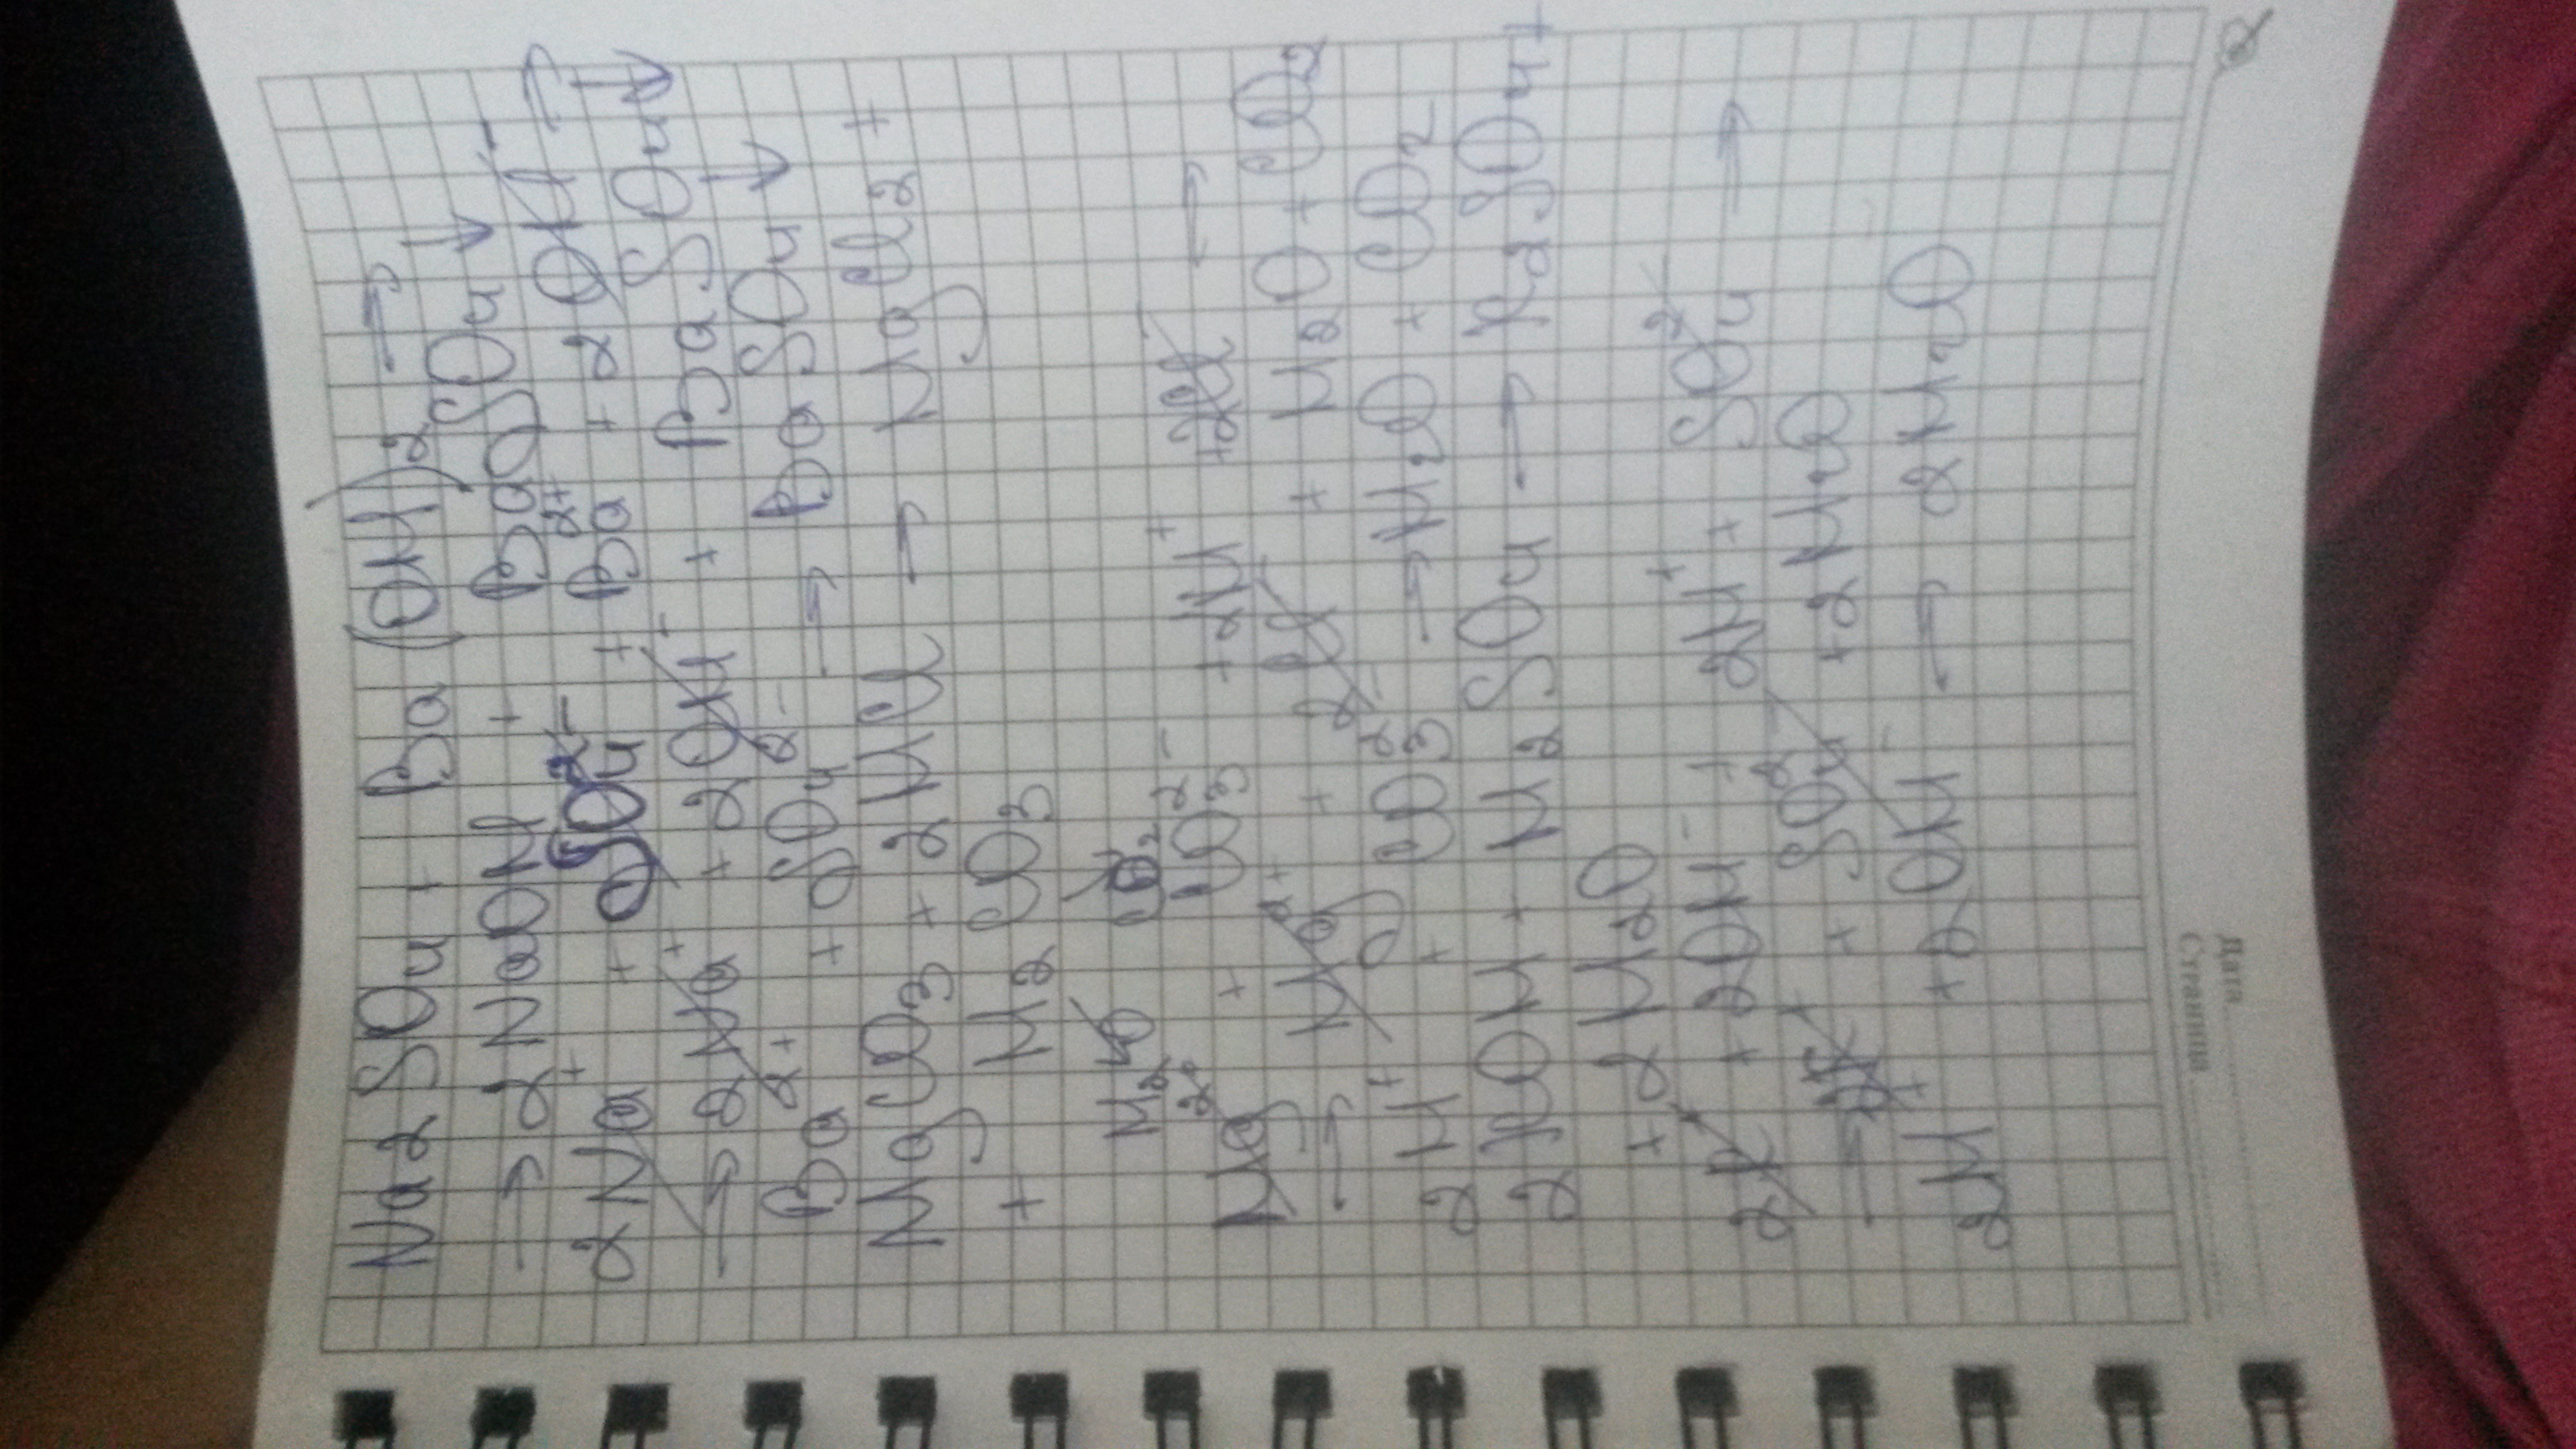 Na2SO4 + Ba(OH)2 →
→ 2NaOH + BaSO4 ↓
2Na⁺ + SO4²⁻ + Ba²⁺ + 2OH⁻ →
→ 2Na⁺ + 2OH⁻ + BaSO4 ↓
Ba²⁺ + SO4²⁻ → BaSO4 ↓
MgCO3 + 2HCl → MgCl2 +
+ H2CO3
Mg²⁺ CO3²⁻ + 2H⁺ + 2Cl⁻ →
→ Mg²⁺ + 2Cl⁻ + H2O + CO2
2H⁺ + CO3²⁻ → H2O + CO2
2KOH + H2SO4 → K2SO4 +
+ 2H2O
2K⁺ + 2OH⁻ + 2H⁺ + SO4²⁻ →
→ 2K⁺ + SO4²⁻ + 2H2O
2H⁺ + 2OH⁻ → 2H2O
Дата
Страница